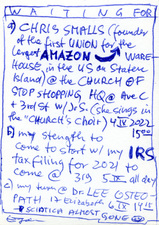 WAITING FOR
a) CHRIS SMALLS (founder
of the first UNION for the
largest AMAZON WARE-
HOUSE, in the US on Staten
Island) @ the CHURCH OF
STOP SHOPPING HQ @ Ave C
+ 3rd St w/ J.S. (she sings in
the "CHURCH'S Choir) 4 IV 2022
15:00
b) my strength to
come to start w/ my IRS
tax filing for 2021 to
come @ 319 5 IV all day
c) my turn @ Dr. LEE OSTEO-
PATH 17 Elizabeth 6 IV 14
SCIATICA ALMOST GONE